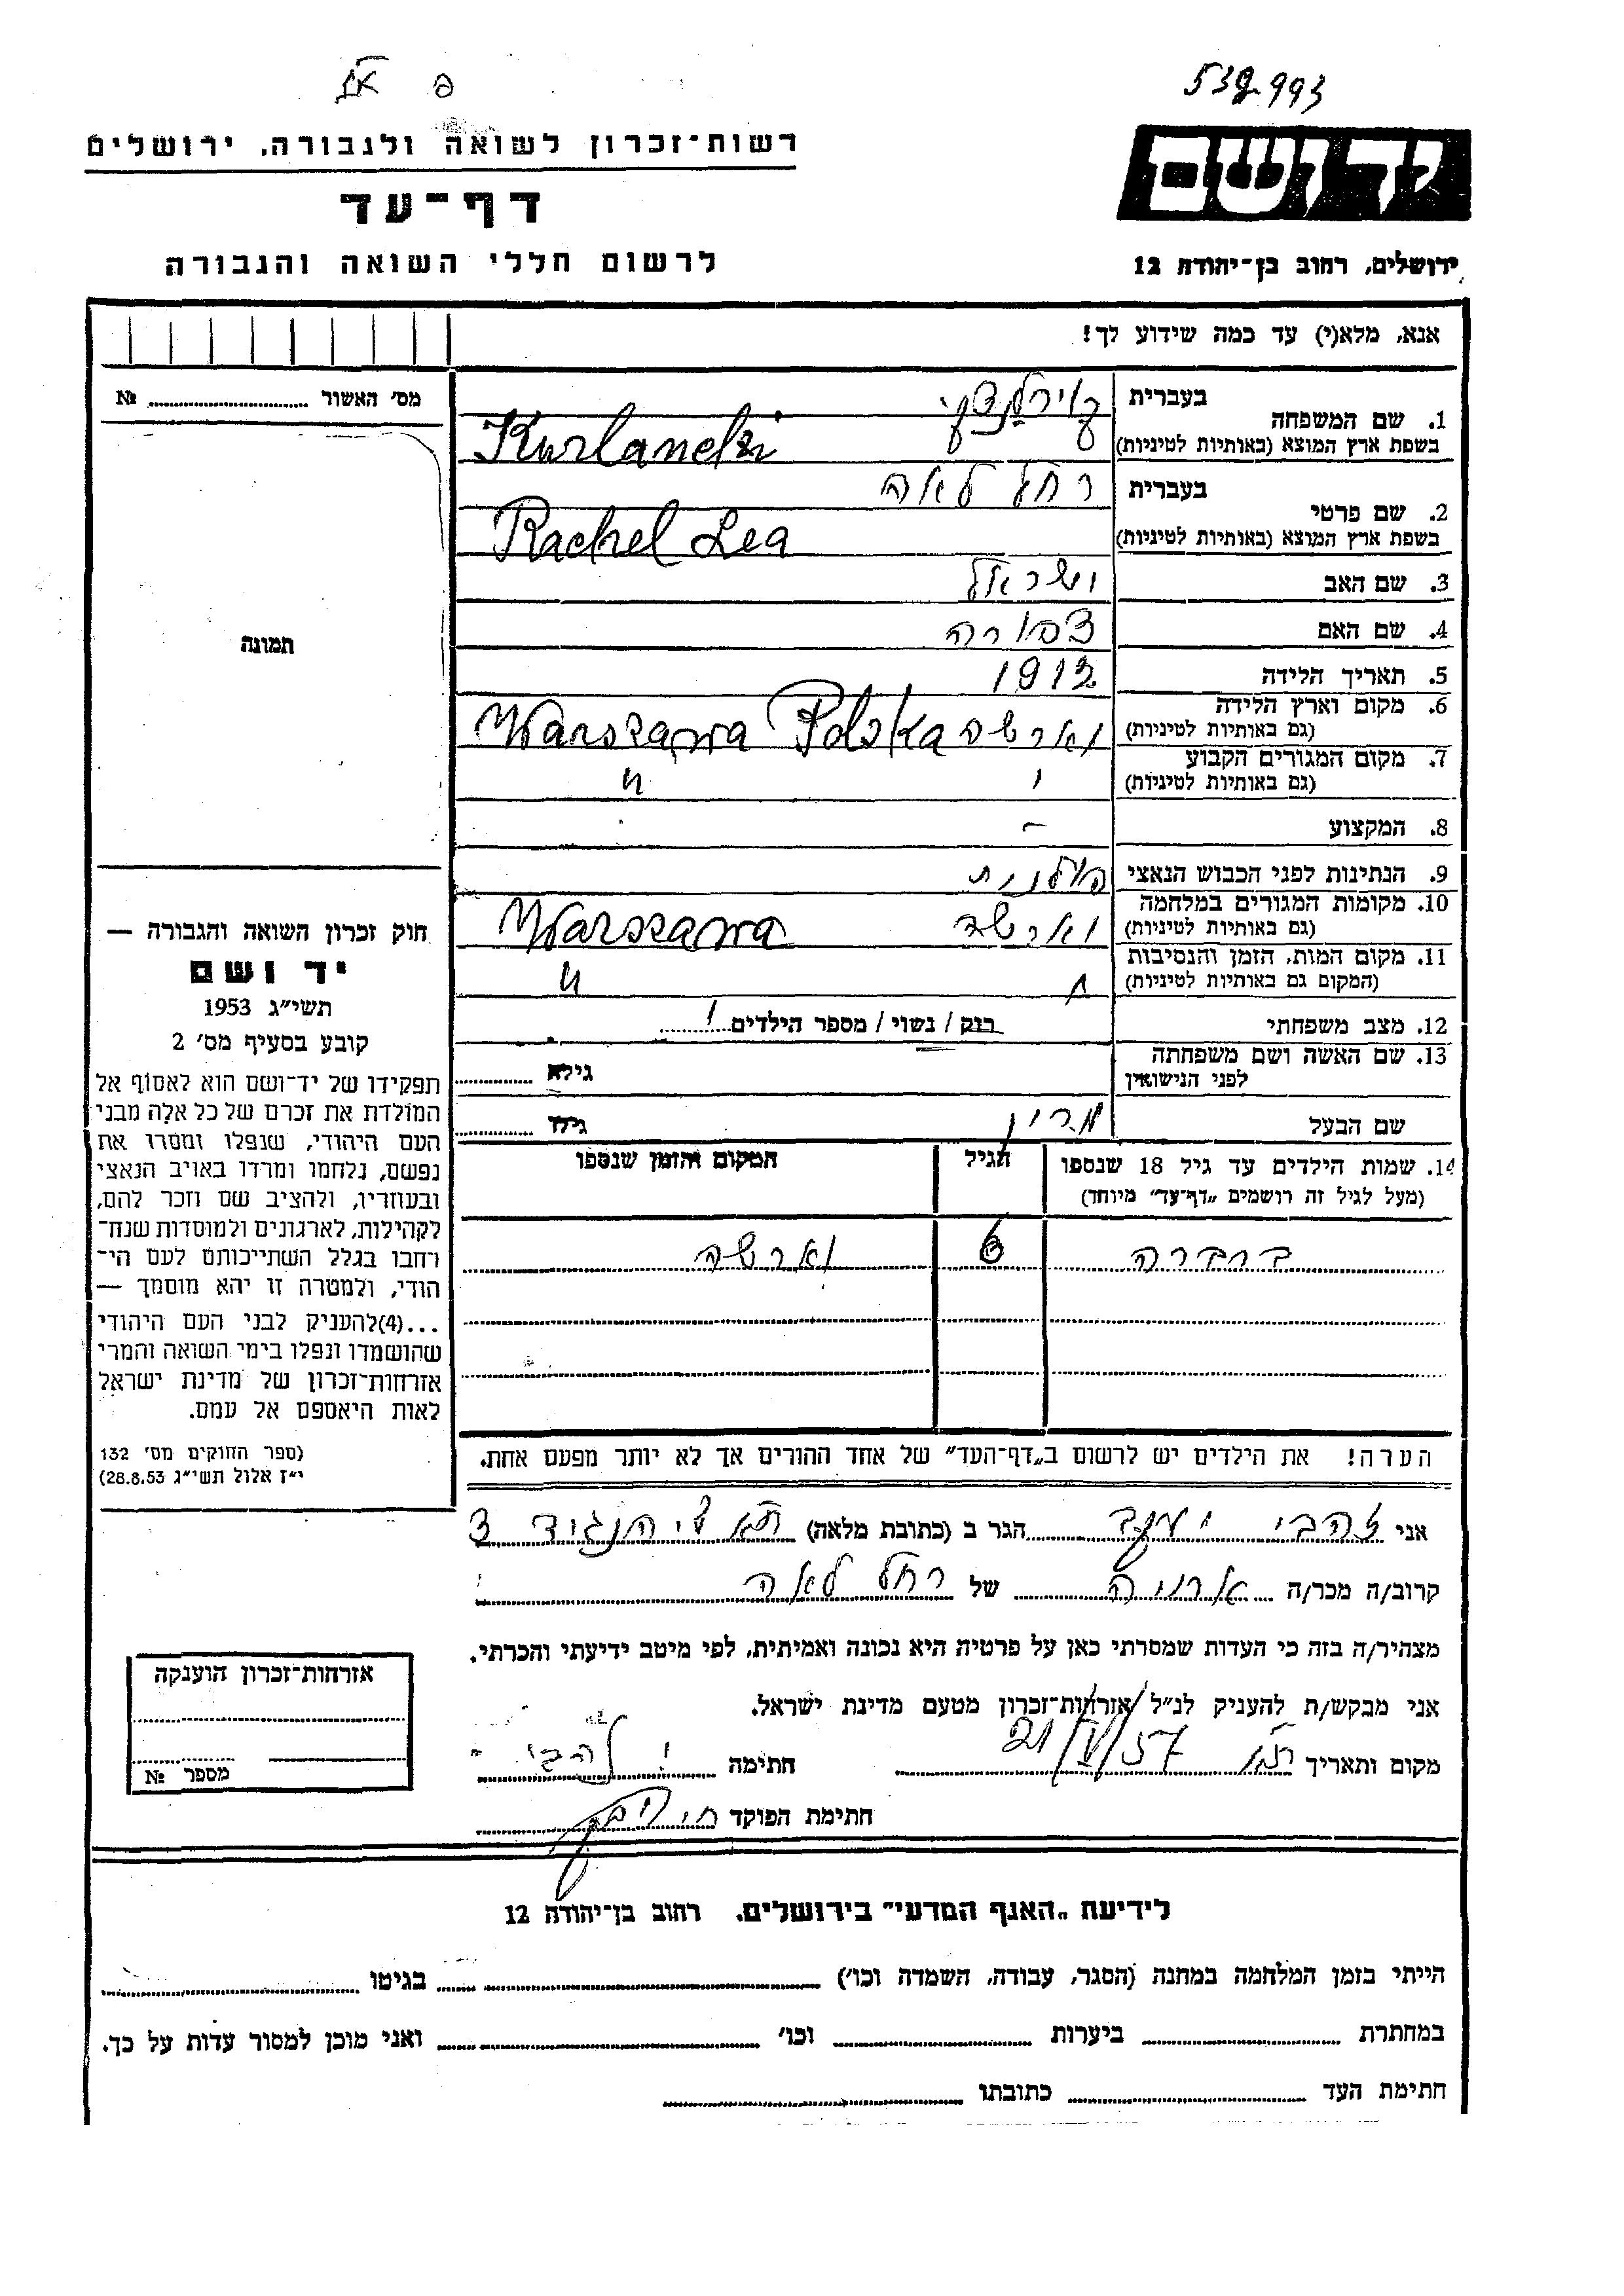 539993
רשות־זכרון לשואה ולגבורה, ירושלים
יד ושם
דף־עד
לרשום חללי השואה והגבורה
ירושלים, רחוב בן־יהודה 12
אנא, מלא(י) עד כמה שידוע לך!
מס' האשור № 
תמונה
1. שם המשפחה בעברית
בשפת ארץ המוצא (באותיות לטיניות) Kurlandzki
2. שם פרטי בעברית רחל לאה
בשפת ארץ המוצא (באותיות לטיניות) Rachel Lea
3. שם האב ישראל
4. שם האם צפורה
5. תאריך הלידה 1912
6. מקום וארץ הלידה (גם באותיות לטיניות) וארשה Warszawa Polska
7. מקום המגורים הקבוע (גם באותיות לטיניות) " "
8. המקצוע –
9. הנתינות לפני הכבוש הנאצי פולנית
10. מקומות המגורים במלחמה (גם באותיות לטיניות) וארשה Warszawa
11. מקום המות, הזמן והנסיבות (המקום גם באותיות לטיניות) " "
12. מצב משפחתי רוק / נשוי / מספר הילדים 1
13. שם האשה ושם משפחתה לפני הנישואין גילא
שם הבעל גילו
14. שמות הילדים עד גיל 18 שנספו הגיל המקום והזמן שנספו
(מעל לגיל זה רושמים „דף־עד" מיוחד)
ברברה 6 וארשה
הערה! את הילדים יש לרשום ב„דף־העד" של אחד ההורים אך לא יותר מפעם אחת.
חוק זכרון השואה והגבורה —
יד ושם
תשי"ג 1953
קובע בסעיף מס' 2
תפקידו של יד־ושם הוא לאסוף אל
המולדת את זכרם של כל אלה מבני
העם היהודי, שנפלו ומסרו את
נפשם, נלחמו ומרדו באויב הנאצי
ובעוזריו, ולהציב שם וזכר להם,
לקהילות, לארגונים ולמוסדות שנח־
רחבו בגלל השתייכותם לעם הי־
הודי, ולמטרה זו יהא מוסמך —
...(4)להעניק לבני העם היהודי
שהושמדו ונפלו בימי השואה והמרי
אזרחות־זכרון של מדינת ישראל
לאות היאספם אל עמם.
(ספר החוקים מס' 132
י"ז אלול תשי"ג 28.8.53)
אני זהבי יעקב הגר ב (כתובת מלאה)
קרוב/ה מכר/ה של רחל לאה
מצהיר/ה בזה כי העדות שמסרתי כאן על פרטיה היא נכונה ואמיתית, לפי מיטב ידיעתי והכרתי.
אני מבקש/ת להעניק לנ"ל אזרחות־זכרון מטעם מדינת ישראל.
מקום ותאריך 21/V/57 חתימה י זהבי
חתימת הפוקד
אזרחות־זכרון הוענקה
מספר №
לידיעת „האגף המדעי" בירושלים, רחוב בן־יהודה 12
הייתי בזמן המלחמה במחנה (הסגר, עבודה, השמדה וכו') בגיטו
במחתרת ביערות וכו' ואני מוכן למסור עדות על כך.
חתימת העד כתובתו